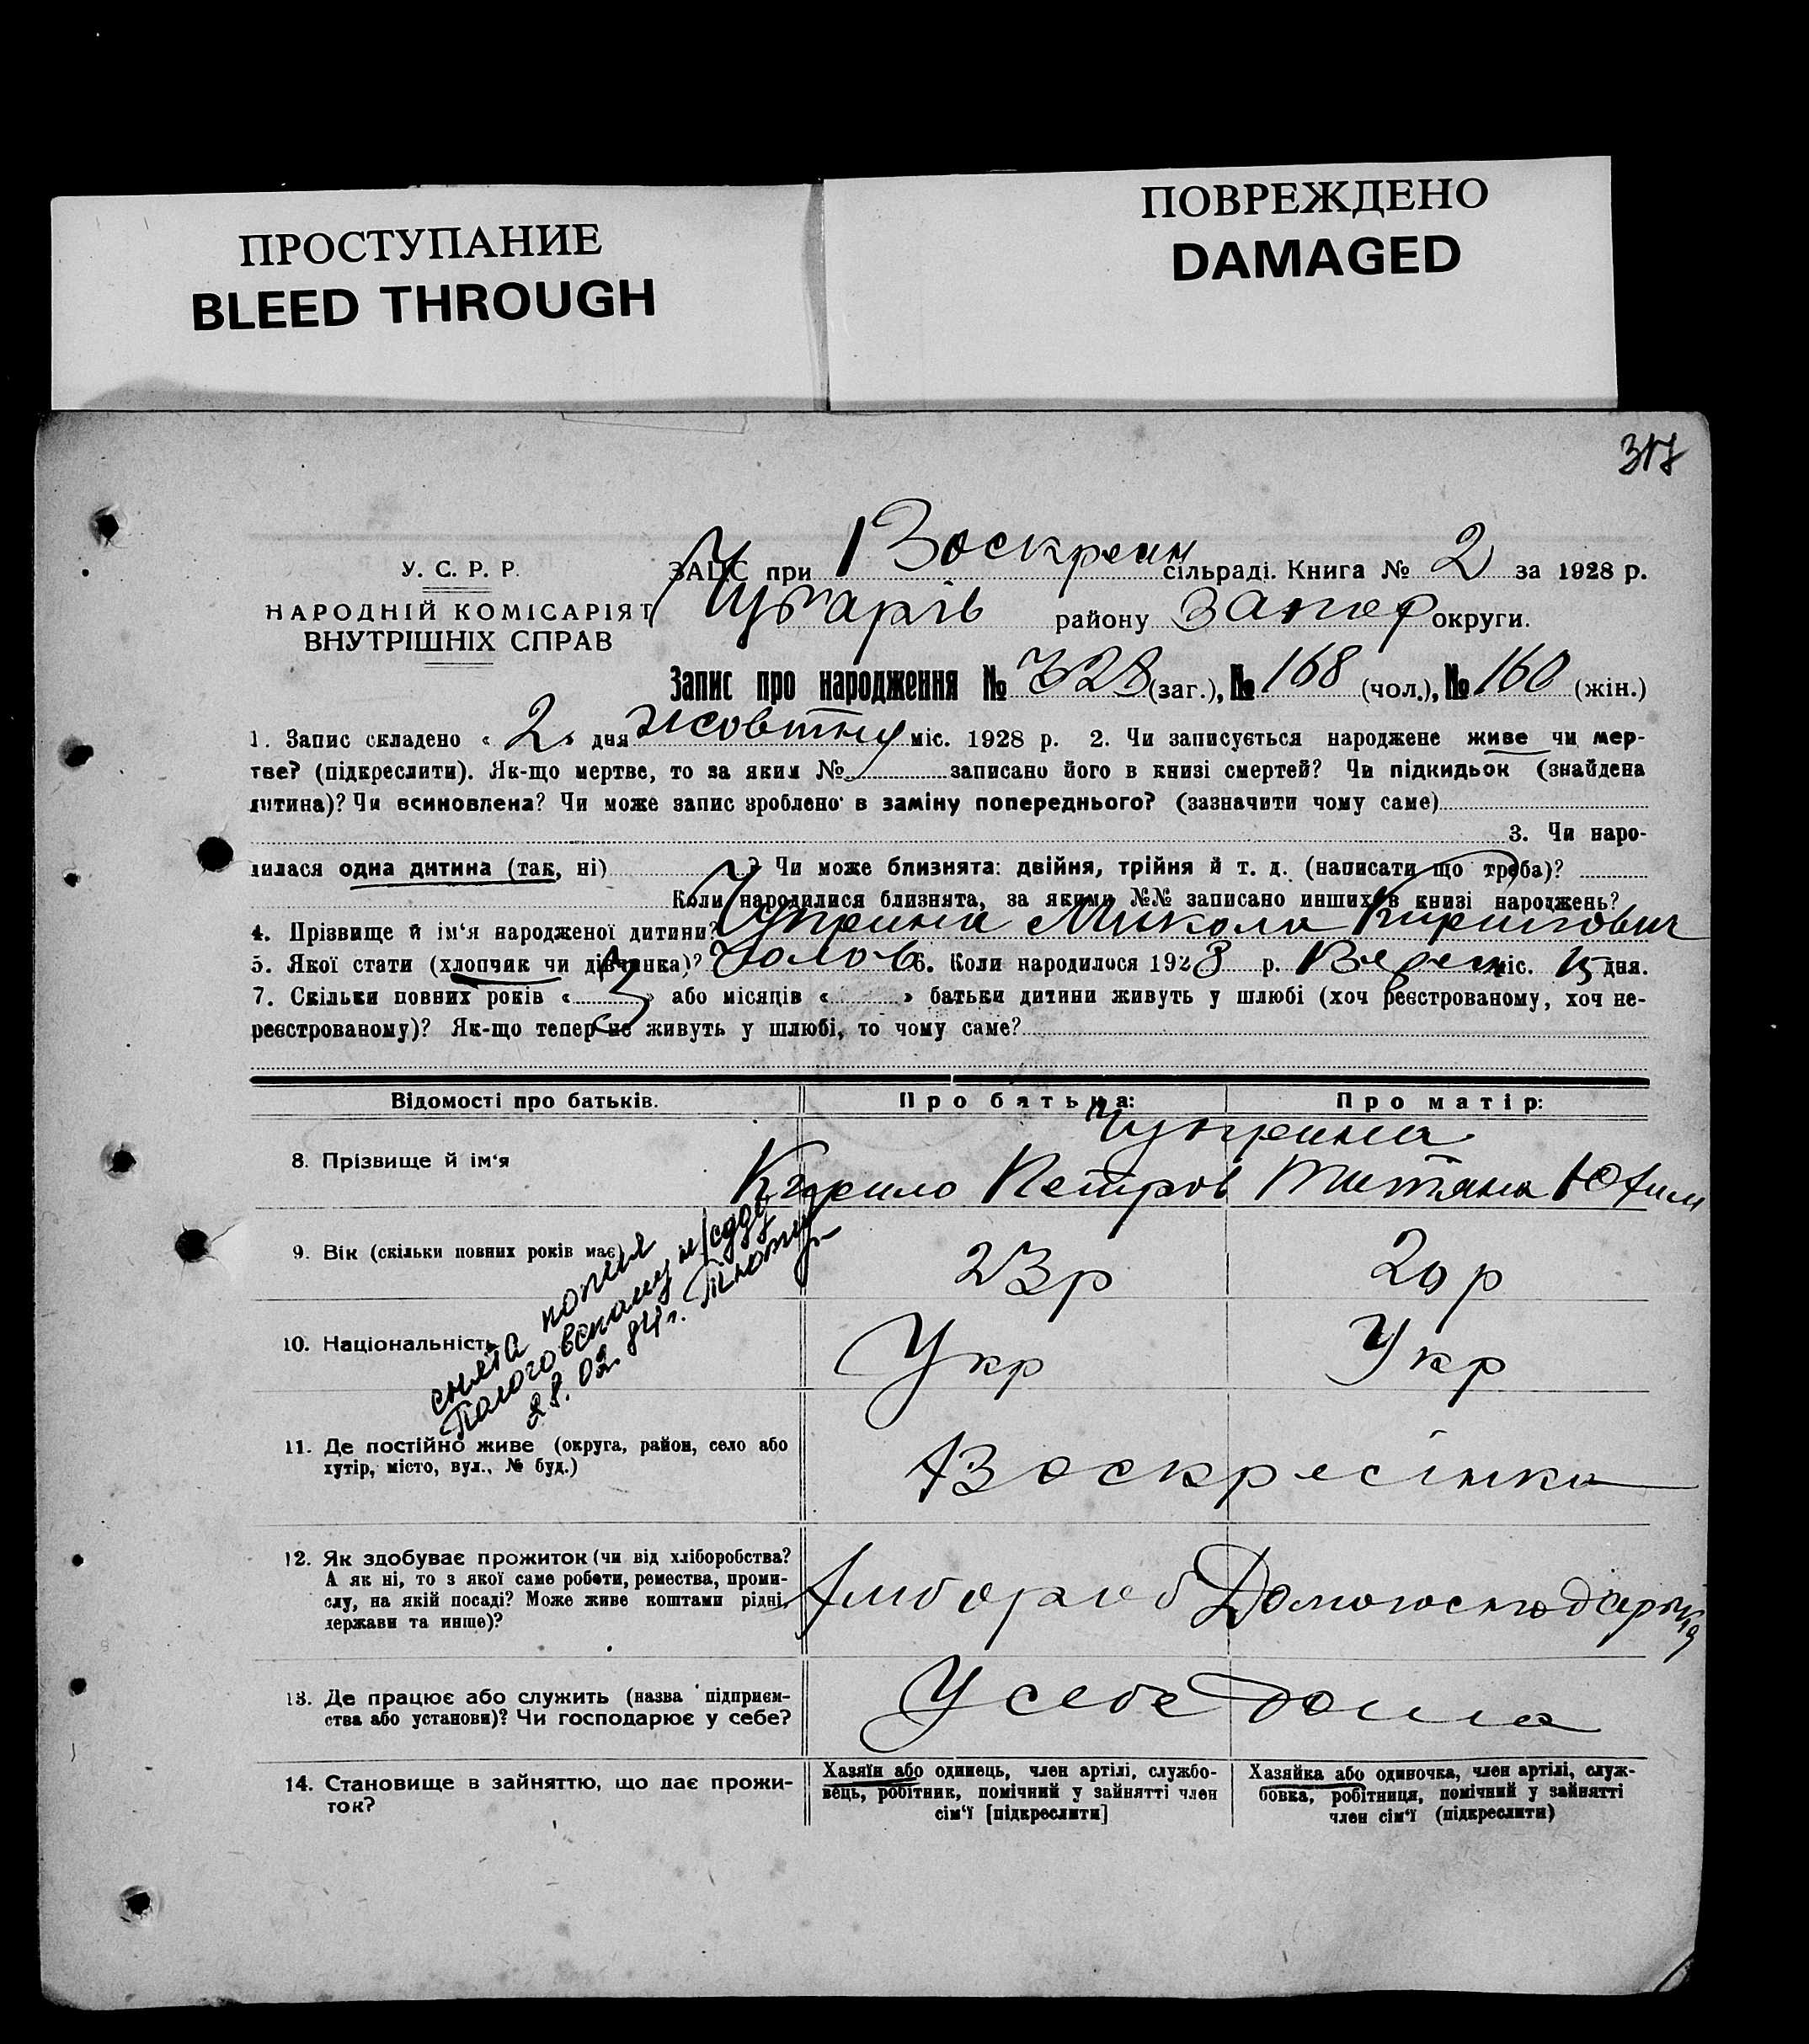 ПРОСТУПАНИЕ
BLEED THROUGH
ПОВРЕЖДЕНО
DAMAGED
317
У. С. Р. Р.
НАРОДНІЙ КОМІСАРІЯТ
ВНУТРІШНІХ СПРАВ
ЗАЦС при Воскресн сільраді. Книга № 2 за 1928 р.
району Запор округи.
Запис про народження № 328 (заг.), № 168 (чол.), № 160 (жін.)
1. Запис складено « 2 » дня жовтня міс. 1928 р. 2. Чи записується народжене живе чи мер-
тве? (підкреслити). Як-що мертве, то за яким № записано його в книзі смертей? Чи підкидьок (знайдена
дитина)? Чи всиновлена? Чи може запис зроблено в заміну попереднього? (зазначити чому саме)
3. Чи наро-
дилася одна дитина (так, ні) ? Чи може близнята: двійня, трійня й т. д. (написати що треба)?
Коли народилися близнята, за якими №№ записано инших в книзі народжень?
4. Прізвище й ім'я народженої дитини? Чуприна Микола Кирилович
5. Якої стати (хлопчяк чи дівчинка)? Чолов 6. Коли народилося 1928 р. Верес міс. 15 дня.
7. Скільки повних років « 3 » або місяців « » батьки дитини живуть у шлюбі (хоч реєстрованому, хоч не-
реєстрованому)? Як-що тепер не живуть у шлюбі, то чому саме?
Відомості про батьків. Про батька: Про матір:
Чуприна
8. Прізвище й ім'я Кирило Петров Титяна Юхим
9. Вік (скільки повних років має) 23 р 20 р
снята копия
Пологовскому н/суду
28.02.84 г.
10. Національність Укр Укр
11. Де постійно живе (округа, район, село або
хутір, місто, вул., № буд.) Воскресінка
12. Як здобуває прожиток (чи від хліборобства?
А як ні, то з якої саме роботи, ремества, проми-
слу, на якій посаді? Може живе коштами рідні,
держави та инше)? Хлибороб Домогосподарька
13. Де працює або служить (назва підприєм-
ства або установи)? Чи господарює у себе? У себе дома
14. Становище в зайняттю, що дає прожи-
ток?
Хазяїн або одинець, член артілі, службо-
вець, робітник, помічний у зайнятті член
сім'ї [підкреслити]
Хазяйка або одиночка, член артілі, служ-
бовка, робітниця, помічний у зайнятті
член сім'ї (підкреслити)